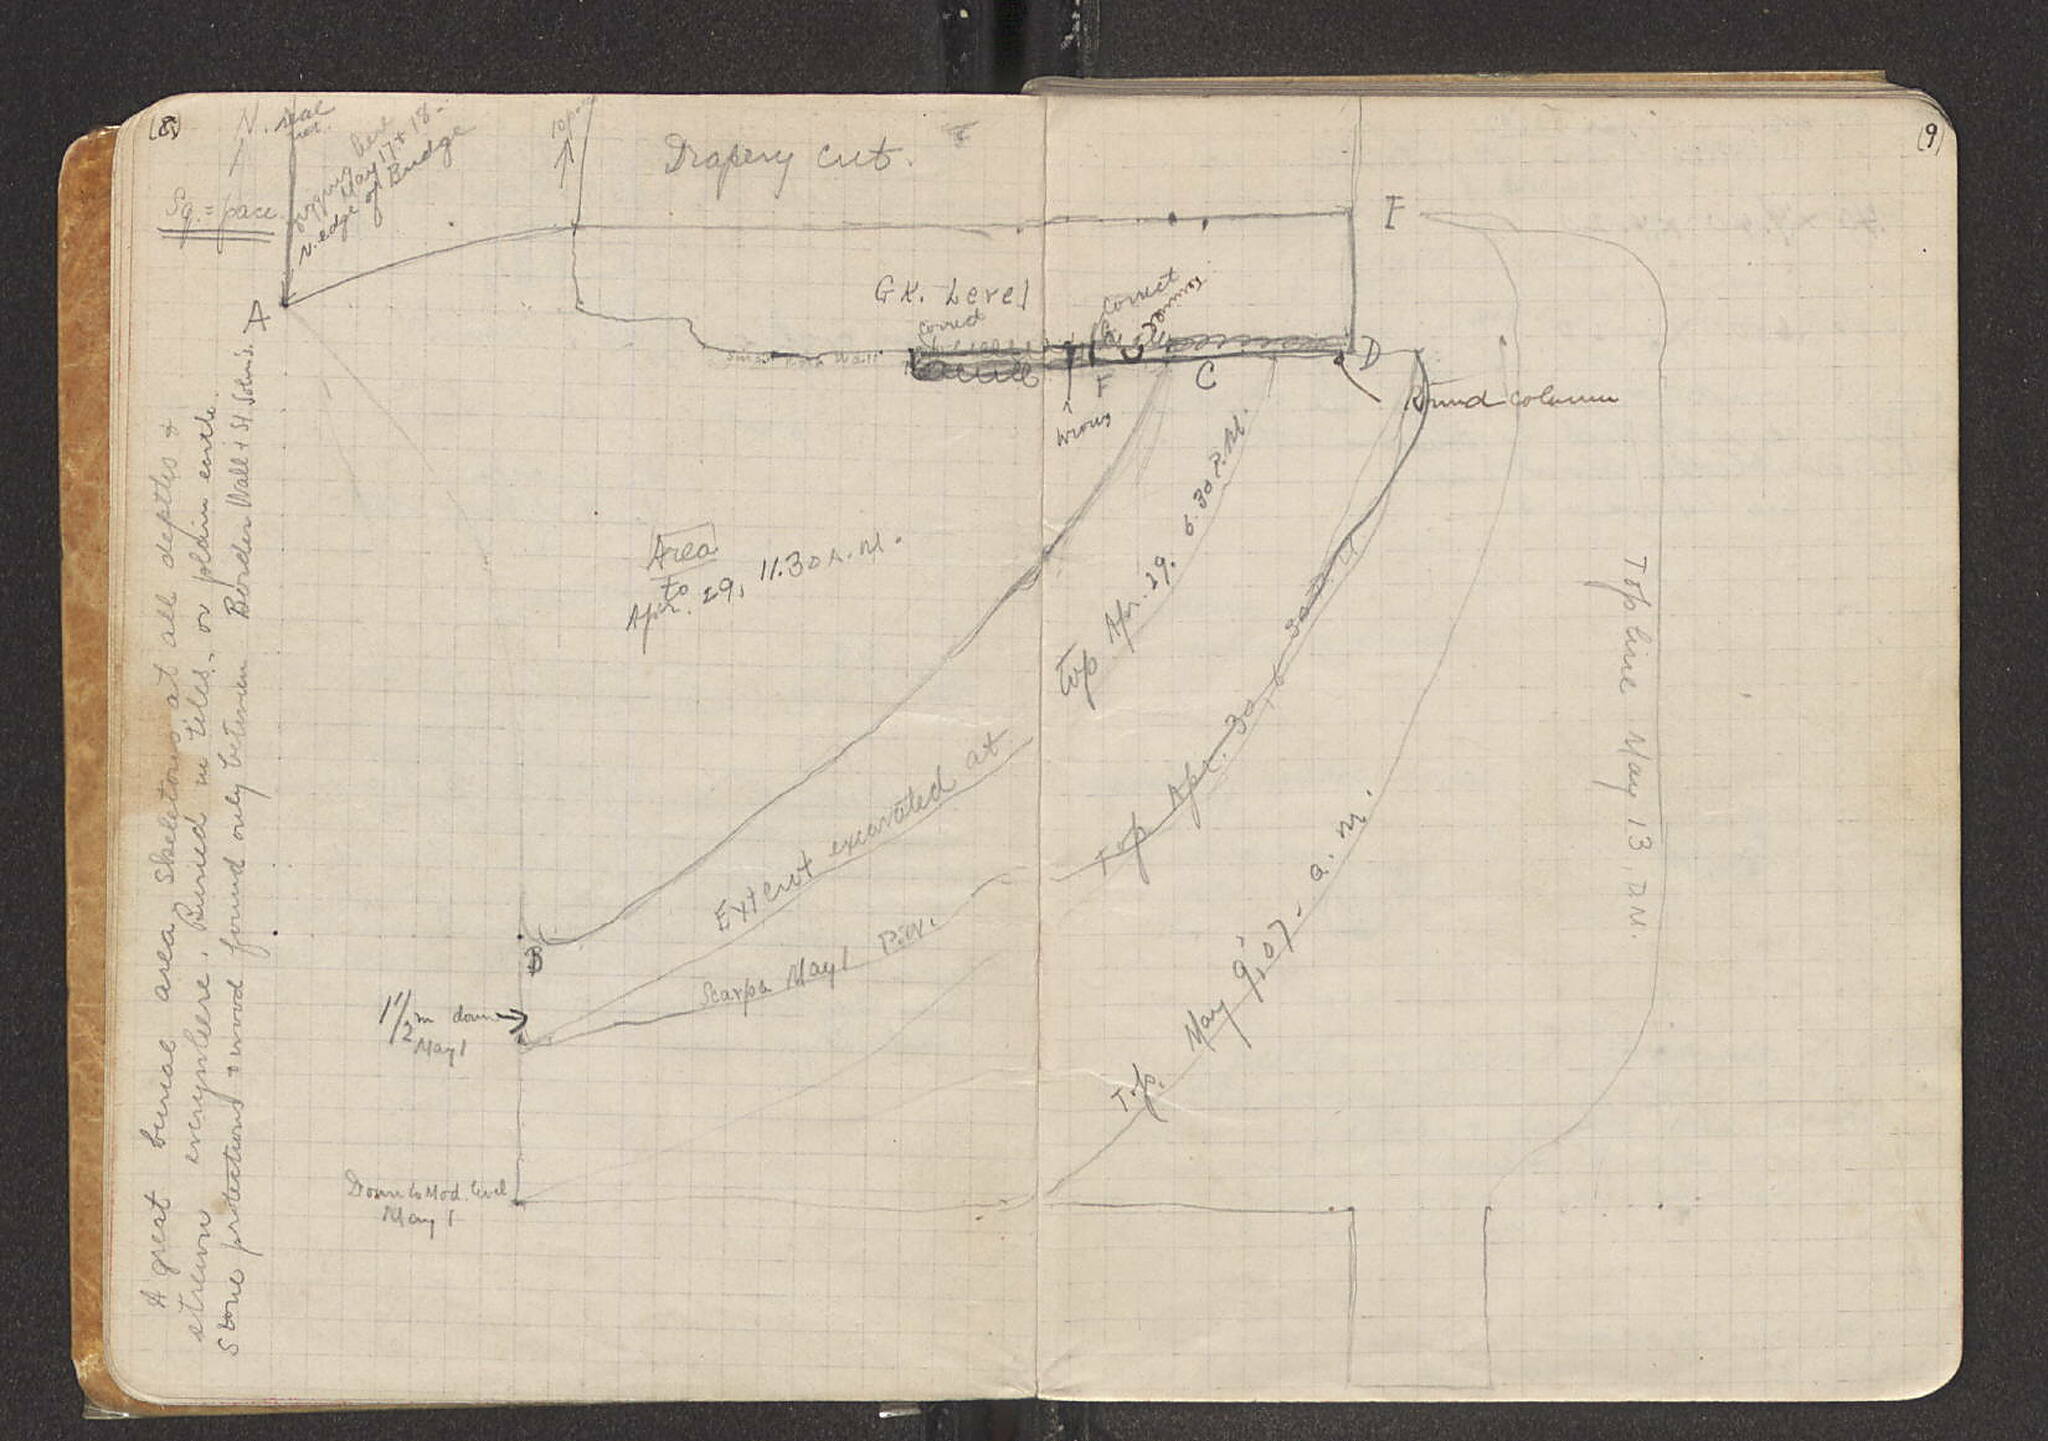 (8)
N.
Sq. = pace
digging here
May 17 + 18.
N. edge of Bridge
Drapery Cut.
(9)
A
E
Gk. Level
correct
correct
wrong
F
C
D
Round column
Area
to
Apr. 29, 11.30 A.M.
Top Apr. 29. 6.30 P.M.
Extent excavated at
Top Apr. 30, 6.30
Scarpa May 1
B
1 1/2 m down
May 1
Top. May 9, '07 - a.m.
Top line May 13,
Down to Mod. level
May 1
A great burial area. Skeletons at all depths +
strewn everywhere. Buried in tiles, or plain earth.
Stone protections + wood found only between Border Wall + St. John's.